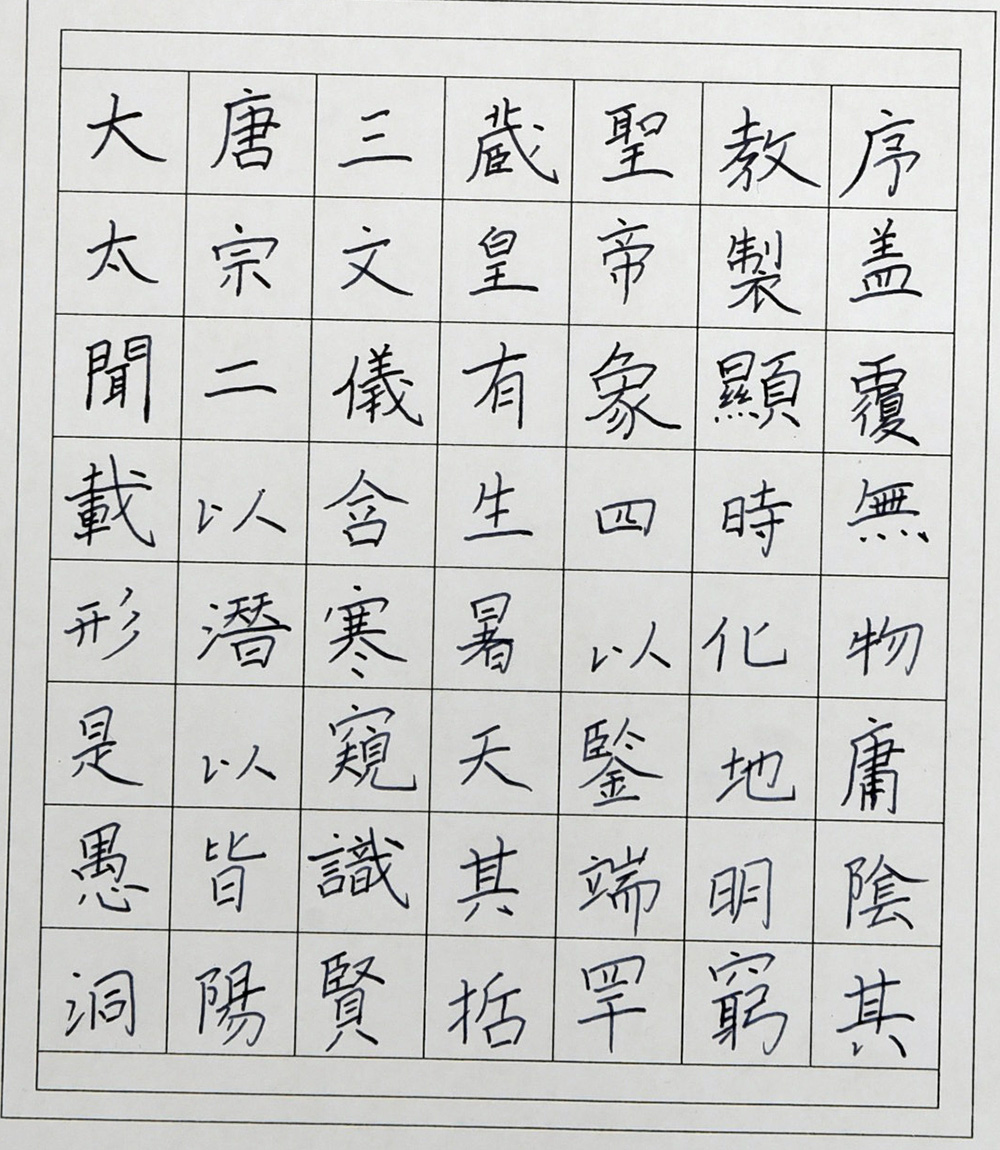 大唐三蔵聖教序
太宗文皇帝製盖
聞二儀有象顯覆
載以含生四時無
形潛寒暑以化物
是以窺天鑒地庸
愚皆識其端明陰
洞陽賢哲罕窮其